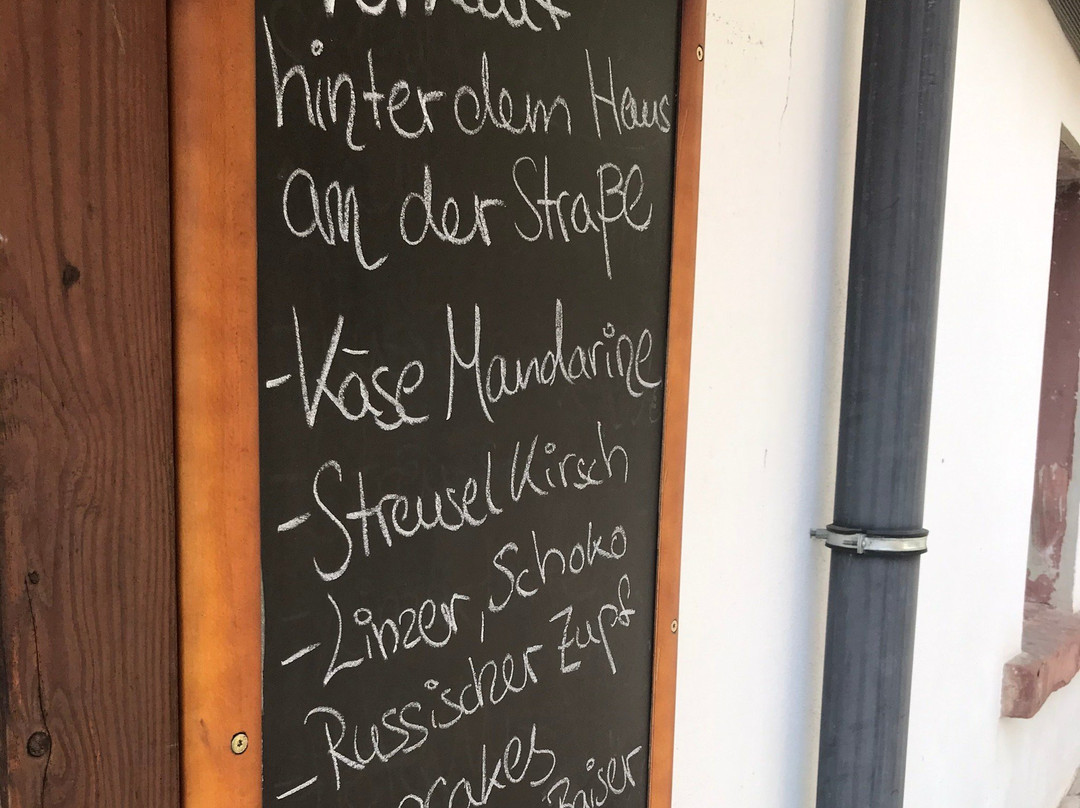 hinter dem Haus
an der Straße
- Käse Mandarine
- Streusel Kirsch
- Linzer, Schoko
- Russischer Zupf
Baiser